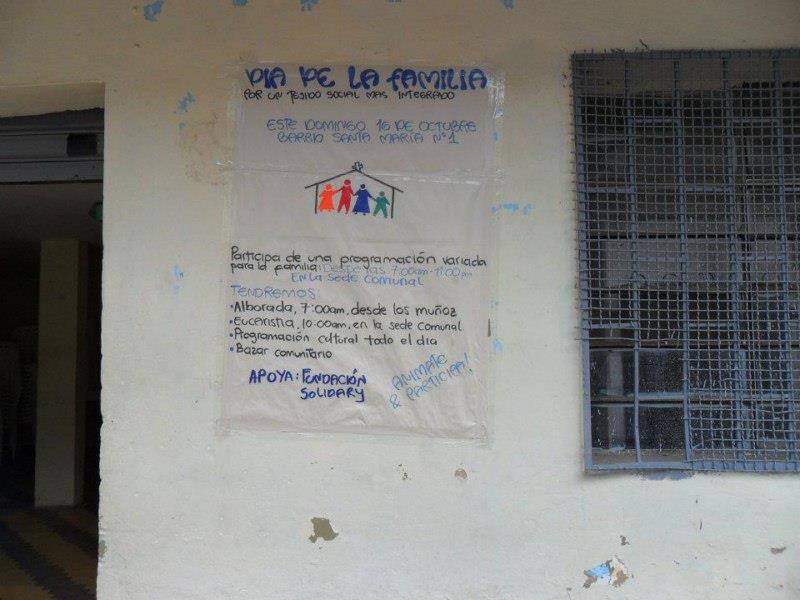 DIA DE LA FAMILIA
POR UN TEJIDO SOCIAL MAS INTEGRADO
ESTE DOMINGO 16 DE OCTUBRE
BARRIO SANTA MARÍA Nº1
Participa de una programación variada
para la familia: Desde las 7:00am-11:00pm
EN LA SEDE COMUNAL
TENDREMOS:
•Alborada, 7:00am, desde los muñoz
•Eucaristia, 10:00am, en la sede comunal
•Programación cultural todo el día
•Bazar comunitario
APOYA: FUNDACIÓN
SOLIDARY
ANIMATE
& PARTICIPA!